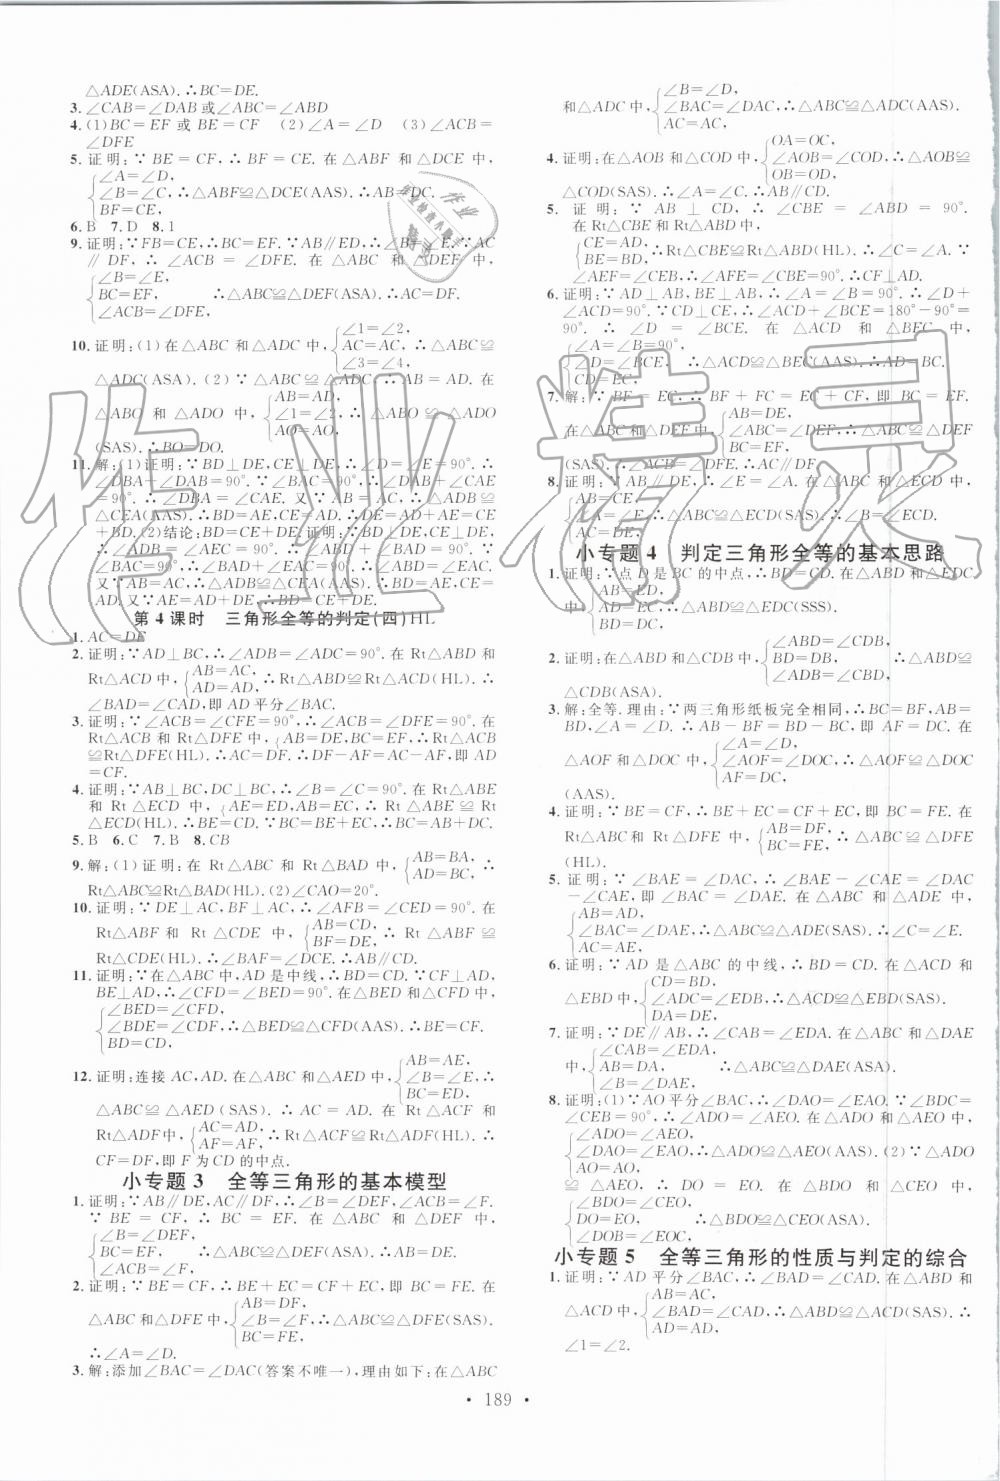 △ADE(ASA).∴BC=DE.
3.∠CAB=∠DAB或∠ABC=∠ABD
4.(1)BC=EF或BE=CF (2)∠A=∠D (3)∠ACB=
∠DFE
5.证明:∵BE=CF,∴BF=CE.在△ABF和△DCE中,
{∠A=∠D,
∠B=∠C,∴△ABF≌△DCE(AAS).∴AB=DC.
BF=CE,
6.B 7.D 8.1
9.证明:∵FB=CE,∴BC=EF.∵AB∥ED,∴∠B=∠E.∵AC
∥DF,∴∠ACB=∠DFE.在△ABC和△DEF中,
{∠B=∠E,
BC=EF, ∴△ABC≌△DEF(ASA).∴AC=DF.
∠ACB=∠DFE,
10.证明:(1)在△ABC和△ADC中,{∠1=∠2,
AC=AC,∴△ABC≌
∠3=∠4,
△ADC(ASA).(2)∵△ABC≌△ADC,∴AB=AD.在
△ABO和△ADO中,{AB=AD,
∠1=∠2,∴△ABO≌△ADO
AO=AO,
(SAS).∴BO=DO.
11.解:(1)证明:∵BD⊥DE,CE⊥DE,∴∠D=∠E=90°.∴
∠DBA+∠DAB=90°.∵∠BAC=90°,∴∠DAB+∠CAE
=90°.∴∠DBA=∠CAE.又∵AB=AC,∴△ADB≌
△CEA(AAS).∴BD=AE,CE=AD.∴DE=AD+AE=CE+
BD.(2)结论:BD=CE+DE.证明:∵BD⊥DE,CE⊥DE,
∴∠ADB=∠AEC=90°.∴∠ABD+∠BAD=90°.∵
∠BAC=90°,∴∠BAD+∠EAC=90°.∴∠ABD=∠EAC.
又∵AB=AC,∴△ADB≌△CEA(AAS).∴BD=AE,CE=
AD.∴BD=AE=AD+DE=CE+DE.
第4课时 三角形全等的判定(四)HL
1.AC=DE
2.证明:∵AD⊥BC,∴∠ADB=∠ADC=90°.在Rt△ABD和
Rt△ACD中,{AB=AC,
AD=AD,∴Rt△ABD≌Rt△ACD(HL).∴
∠BAD=∠CAD,即AD平分∠BAC.
3.证明:∵∠ACB=∠CFE=90°,∴∠ACB=∠DFE=90°.在
Rt△ACB和Rt△DFE中,{AB=DE,BC=EF,∴Rt△ACB
≌Rt△DFE(HL).∴AC=DF.∴DF-AF=AC-AF,即AD
=CF.
4.证明:∵AB⊥BC,DC⊥BC,∴∠B=∠C=90°.在Rt△ABE
和Rt△ECD中,{AE=ED,AB=EC,∴Rt△ABE≌Rt
△ECD(HL).∴BE=CD.∵BC=BE+EC,∴BC=AB+CD.
5.B 6.C 7.B 8.CB
9.解:(1)证明:在Rt△ABC和Rt△BAD中,{AB=BA,
AD=BC,∴
Rt△ABC≌Rt△BAD(HL).(2)∠CAO=20°.
10.证明:∵DE⊥AC,BF⊥AC,∴∠AFB=∠CED=90°.在
Rt△ABF和Rt△CDE中,{AB=CD,
BF=DE,∴Rt△ABF≌
Rt△CDE(HL).∴∠BAF=∠DCE.∴AB∥CD.
11.证明:∵在△ABC中,AD是中线,∴BD=CD.∵CF⊥AD,
BE⊥AD,∴∠CFD=∠BED=90°.在△BED和△CFD中,
{∠BED=∠CFD,
∠BDE=∠CDF,∴△BED≌△CFD(AAS).∴BE=CF.
BD=CD,
12.证明:连接AC,AD.在△ABC和△AED中,{AB=AE,
∠B=∠E,∴
BC=ED,
△ABC≌△AED(SAS).∴AC=AD.在Rt△ACF和
Rt△ADF中,{AC=AD,
AF=AF,∴Rt△ACF≌Rt△ADF(HL).∴
CF=DF,即F为CD的中点.
小专题3 全等三角形的基本模型
1.证明:∵AB∥DE,AC∥DF,∴∠B=∠DEF,∠ACB=∠F.
∵BE=CF,∴BC=EF.在△ABC和△DEF中,
{∠B=∠DEF,
BC=EF, ∴△ABC≌△DEF(ASA).
∠ACB=∠F,
2.证明:∵BE=CF,∴BE+EC=CF+EC,即BC=FE.在
△ABC和△DFE中,{AB=DF,
∠B=∠F,∴△ABC≌△DFE(SAS).
BC=FE,
∴∠A=∠D.
3.解:添加∠BAC=∠DAC(答案不唯一),理由如下:在△ABC
和△ADC中,{∠B=∠D,
∠BAC=∠DAC,∴△ABC≌△ADC(AAS).
AC=AC,
4.证明:在△AOB和△COD中,{OA=OC,
∠AOB=∠COD,∴△AOB≌
OB=OD,
△COD(SAS).∴∠A=∠C.∴AB∥CD.
5.证明:∵AB⊥CD,∴∠CBE=∠ABD=90°.
在Rt△CBE和Rt△ABD中,
{CE=AD,
BE=BD,∴Rt△CBE≌Rt△ABD(HL).∴∠C=∠A.∵
∠AEF=∠CEB,∴∠AFE=∠CBE=90°.∴CF⊥AD.
6.证明:∵AD⊥AB,BE⊥AB,∴∠A=∠B=90°.∴∠D+
∠ACD=90°.∵CD⊥CE,∴∠ACD+∠BCE=180°-90°=
90°.∴∠D=∠BCE.在△ACD和△BEC中,
{∠A=∠B,
∠D=∠BCE,∴△ACD≌△BEC(AAS).∴AD=BC.
CD=EC,
7.解:∵BF=EC,∴BF+FC=EC+CF,即BC=EF.
在△ABC和△DEF中,{AB=DE,
∠ABC=∠DEF,∴△ABC≌△DEF
BC=EF,
(SAS).∴∠ACB=∠DFE.∴AC∥DF.
8.证明:∵AB∥DE,∴∠A=∠E.在△ABC和△ECD中,
{AB=EC,
∠A=∠E,∴△ABC≌△ECD(SAS).∴∠B=∠ECD.
AC=ED,
小专题4 判定三角形全等的基本思路
1.证明:∵点D是BC的中点,∴BD=CD.在△ABD和△EDC
中,{AB=ED,
AD=EC,∴△ABD≌△EDC(SSS).
BD=DC,
2.证明:在△ABD和△CDB中,{∠ABD=∠CDB,
BD=DB,∴△ABD≌
∠ADB=∠CBD,
△CDB(ASA).
3.解:全等.理由:∵两三角形纸板完全相同,∴BC=BF,AB=
BD,∠A=∠D.∴AB-BF=BD-BC,即AF=DC.在
△AOF和△DOC中,{∠A=∠D,
∠AOF=∠DOC,∴△AOF≌△DOC
AF=DC,
(AAS).
4.证明:∵BE=CF,∴BE+EC=CF+EC,即BC=FE.在
Rt△ABC和Rt△DFE中,{AB=DF,
BC=FE,∴△ABC≌△DFE
(HL).
5.证明:∵∠BAE=∠DAC,∴∠BAE-∠CAE=∠DAC
-∠CAE,即∠BAC=∠DAE.在△ABC和△ADE中,
{AB=AD,
∠BAC=∠DAE,∴△ABC≌△ADE(SAS).∴∠C=∠E.
AC=AE,
6.证明:∵AD是△ABC的中线,∴BD=CD.在△ACD和
△EBD中,{CD=BD,
∠ADC=∠EDB,∴△ACD≌△EBD(SAS).
DA=DE,
7.证明:∵DE∥AB,∴∠CAB=∠EDA.在△ABC和△DAE
中,{∠CAB=∠EDA,
AB=DA, ∴△ABC≌△DAE(ASA).
∠B=∠DAE,
8.证明:(1)∵AO平分∠BAC,∴∠DAO=∠EAO.∵∠BDC=
∠CEB=90°,∴∠ADO=∠AEO.在△ADO和△AEO中,
{∠ADO=∠AEO,
∠DAO=∠EAO,∴△ADO≌△AEO(AAS).(2)∵△ADO
AO=AO,
≌△AEO,∴DO=EO.在△BDO和△CEO中,
{∠BDO=∠CEO,
DO=EO, ∴△BDO≌△CEO(ASA).
∠DOB=∠EOC,
小专题5 全等三角形的性质与判定的综合
1.证明:∵AD平分∠BAC,∴∠BAD=∠CAD.在△ABD和
△ACD中,{AB=AC,
∠BAD=∠CAD,∴△ABD≌△ACD(SAS).∴
AD=AD,
∠1=∠2.
· 189 ·
作业精灵